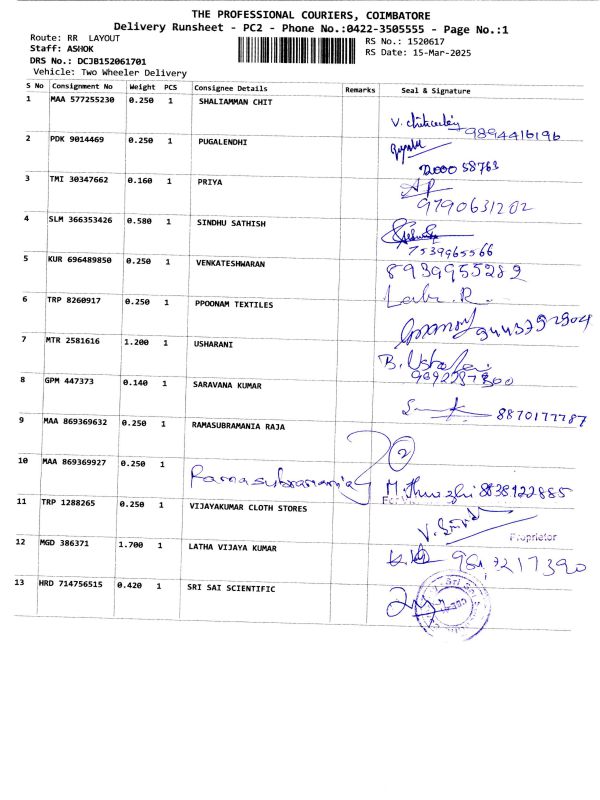 THE PROFESSIONAL COURIERS, COIMBATORE
Delivery Runsheet - PC2 - Phone No.:0422-3505555 - Page No.:1
Route: RR LAYOUT
RS No.: 1520617
Staff: ASHOK
RS Date: 15-Mar-2025
DRS No.: DCJB152061701
Vehicle: Two Wheeler Delivery
S No Consignment No Weight PCS Consignee Details Remarks Seal & Signature
1 MAA 577255230 0.250 1 SHALIAMMAN CHIT
9894416196
2 PDK 9014469 0.250 1 PUGALENDHI
58763
3 TMI 30347662 0.160 1 PRIYA
9790631202
4 SLM 366353426 0.580 1 SINDHU SATHISH
7539965566
5 KUR 696489850 0.250 1 VENKATESHWARAN
8939955289
6 TRP 8260917 0.250 1 PPOONAM TEXTILES
7 MTR 2581616 1.200 1 USHARANI
B.
8 GPM 447373 0.140 1 SARAVANA KUMAR
8870177787
9 MAA 869369632 0.250 1 RAMASUBRAMANIA RAJA
2
10 MAA 869369927 0.250 1
Ramasubramania
8838922885
11 TRP 1288265 0.250 1 VIJAYAKUMAR CLOTH STORES
Proprietor
12 MGD 386371 1.700 1 LATHA VIJAYA KUMAR
13 HRD 714756515 0.420 1 SRI SAI SCIENTIFIC